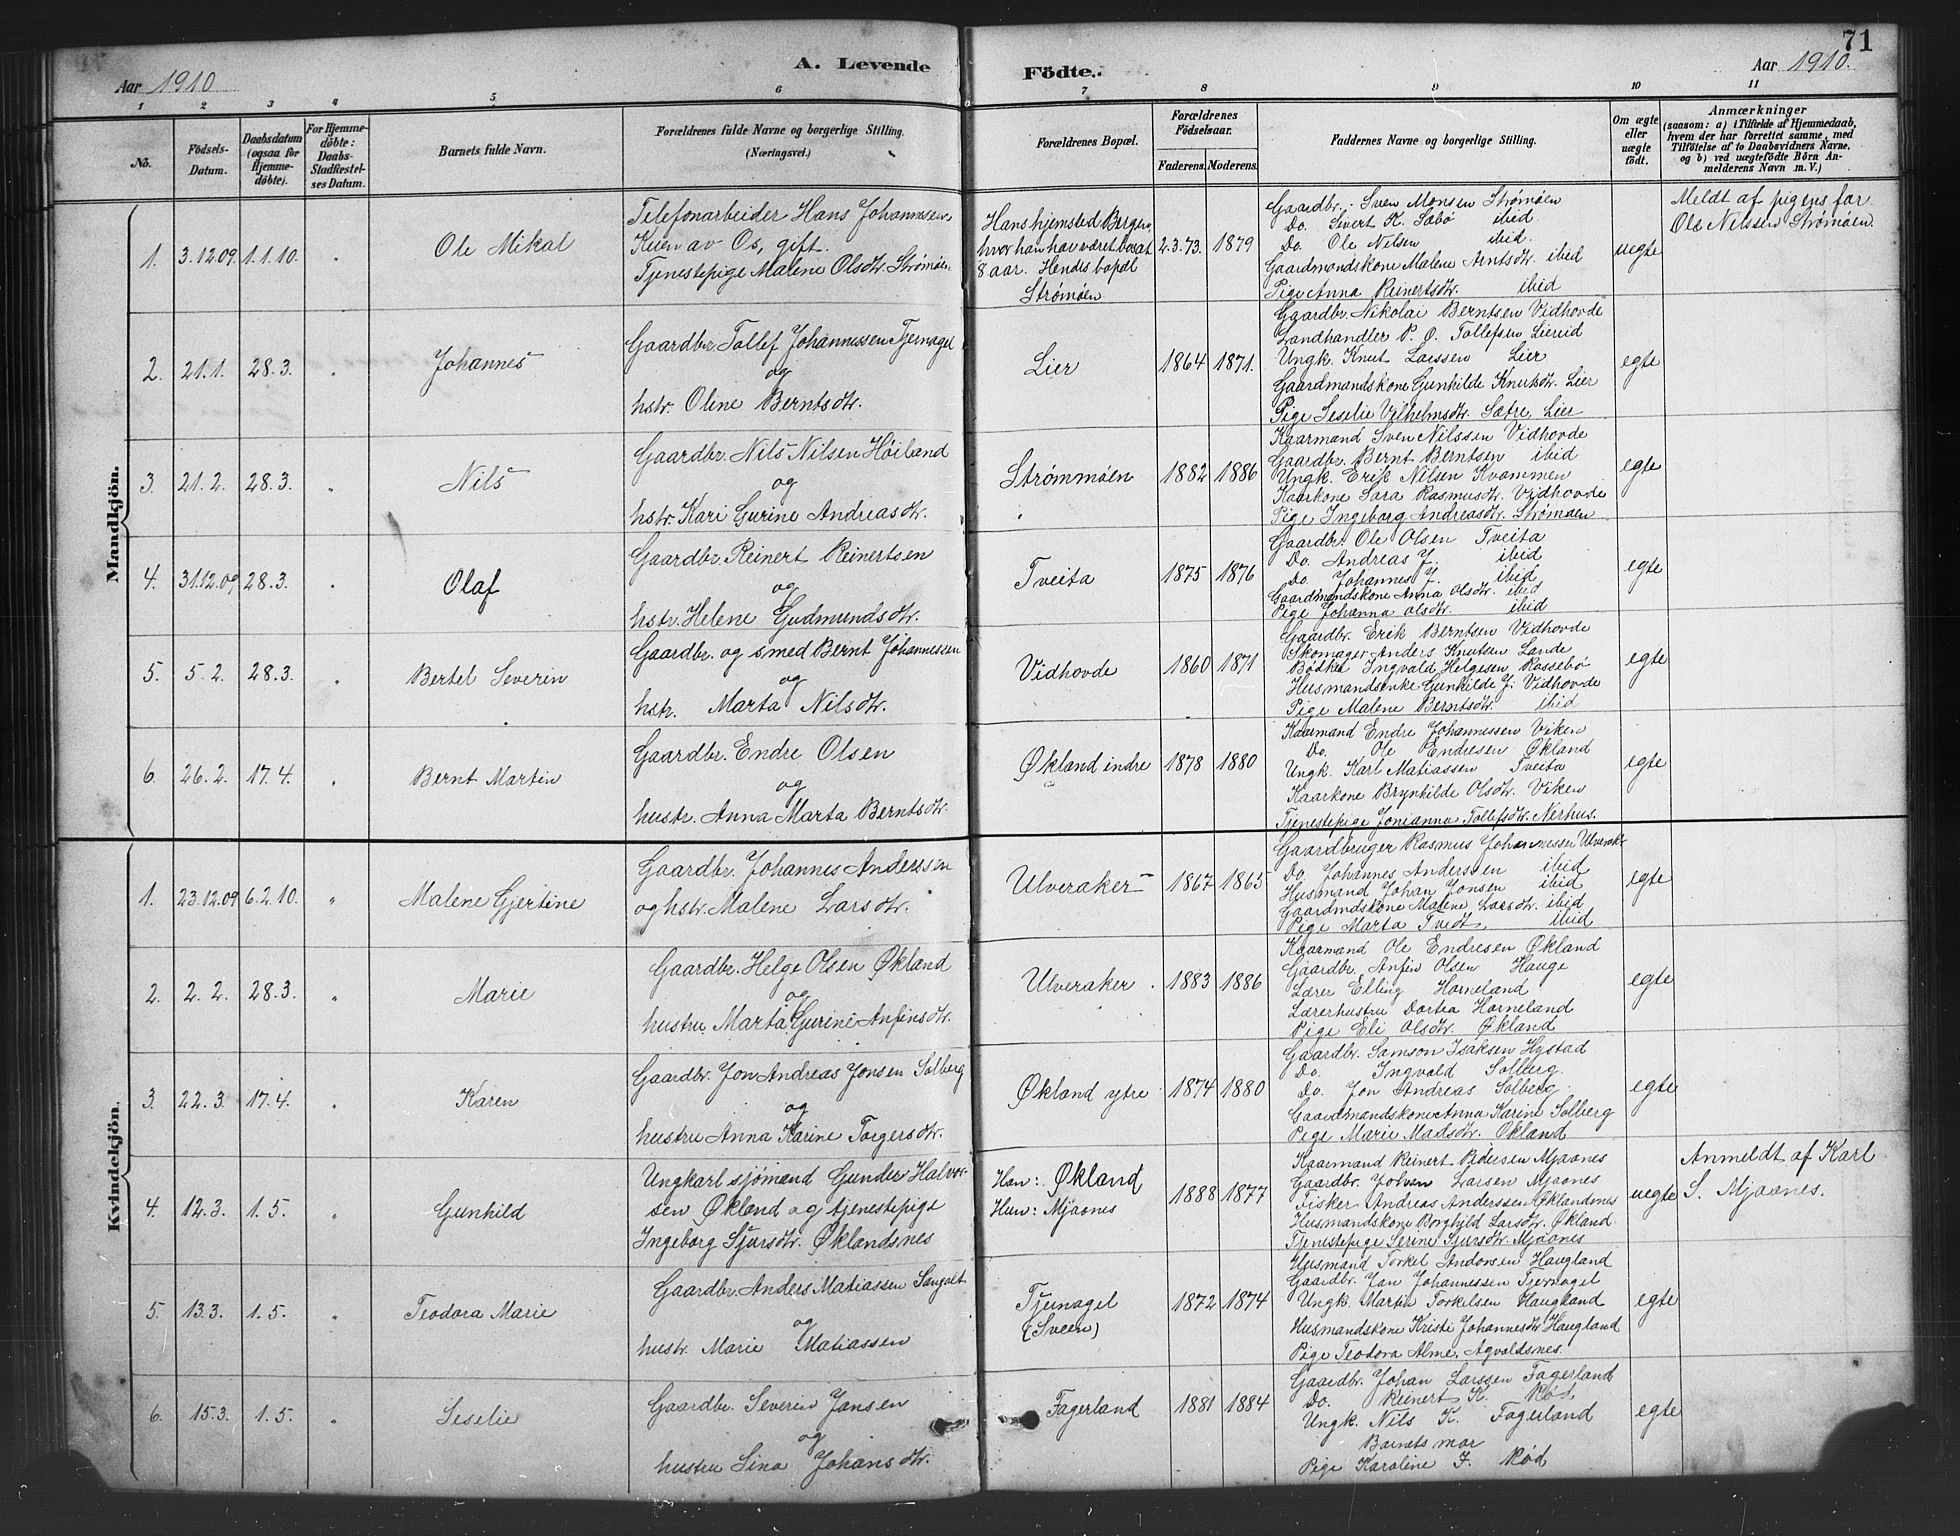 71
Aar 1910
A. Levende
Födte.
Aar 1910.
1 2 3 4 5 6 7 8 9 10 11
No.
Födsels-
Datum.
Daabsdatum
(ogsaa for
Hjemme-
döbte).
For Hjemme-
döbte:
Daabs-
Stadfæstel-
ses Datum.
Barnets fulde Navn.
Forældrenes fulde Navne og borgerlige Stilling.
(Næringsvei.)
Forældrenes Bopæl.
Forældrenes
Födselsaar.
Faderens. Moderens.
Faddernes Navne og borgerlige Stilling.
Om ægte
eller
uægte
födt.
Anmærkninger
(saasom: a) i Tilfælde af Hjemmedaab,
hvem der har forrettet samme, med
Tilföielse af to Daabsvidners Navne,
og b) ved uægtefödte Börn An-
melderens Navn m. V.)
Mandkjön.
1. 3.12.09. 1.1.10. " Ole Mikal
Telefonarbeider Hans Johannesen
Kuen av Os, gift.
Tjenestepige Malene Olsdtr. Strømøen
Hans hjemsted Bergen
hvor han har været bosat
8 aar. Hendes bopæl
Strømøen
2.3.73. 1879
Gaardbr. Sven Monsen Strømøen
Do. Sivert K. Sæbø ibid
Do. Ole Nilsen ibid.
Gaardmandskone Malene Arntsdtr. ibid
Pige Anna Reinertsdtr. ibid
uegte
Meldt af pigens far
Ole Nilssen Strømøen.
2. 21.1. 28.3. " Johannes
Gaardbr. Tollef Johannessen Tjernagel
og
hstr. Oline Berntsdtr.
Lier
1864 1871.
Gaardbr. Nikolai Berntsen Vidhovde
Landhandler P. O. Tollefsen Liereid
Ungk. Knut Larssen Lier
Gaardmandskone Gunhilde Knutsdtr. Lier
Pige Seselie Vilhelmsdtr. Sætre, Lier
egte
3. 21.2. 28.3. " Nils
Gaardbr. Nils Nilsen Høiland
og
hstr. Kari Gurine Andreasdtr.
Strømmøen
1882 1886
Kaarmand Sven Nilssen Vidhovde
Gaardbr. Bernt Berntsen ibid
Ungk. Erik Nilsen Kvammen
Kaarkone Sara Rasmusdtr. Vidhovde
Pige Ingeborg Andreasdtr. Strømøen
egte
4. 31.12.09 28.3. " Olaf
Gaardbr. Reinert Reinertsen
og
hstr. Helene Gudmundsdtr.
Tveita
1875 1876
Gaardbr. Ole Olsen Tveita
Do. Andreas J. ibid
Do. Johannes J. ibid
Gaardmandskone Anna Olsdtr. ibid
Pige Johanna Olsdtr. ibid
egte
5. 5.2. 28.3. " Bertel Severin
Gaardbr. og smed Bernt Johannessen
og
hstr. Marta Nilsdtr.
Vidhovde
1860 1871
Gaardbr. Erik Berntsen Vidhovde
Skomager Anders Knutsen Lande
Bødker Ingvald Helgesen Røssebø
Husmandsenke Gunhilde J. Vidhovde
Pige Malene Berntsdtr. ibid
egte
6. 26.2. 17.4. " Bernt Martin
Gaardbr. Endre Olsen
og
hustr. Anna Marta Berntsdtr.
Økland indre
1878 1880
Kaarmand Endre Johannessen Viken
Do. Ole Endresen Økland
Ungk. Karl Matiassen Tveita
Kaarkone Brynhilde Olsdtr. Viken
Tjenestepige Jonianna Tollefsdtr. Nerhus.
egte
Kvindekjön.
1. 23.12.09 6.2.10. " Malene Gjertine
Gaardbr. Johannes Anderssen
og hstr. Malene Larsdtr.
Ulveraker
1867 1865
Gaardbruger Rasmus Johannessen Ulveraker
Do. Johannes Anderssen ibid
Husmand Johan Jonsen ibid
Gaardmdskone Malene Larsdtr. ibid
Pige Marta Tvedt, ibid
egte
2. 2.2. 28.3. " Marie
Gaardbr. Helge Olsen Økland
og
hustru Marta Gurine Anfinsdtr.
Ulveraker
1883 1886
Kaarmand Ole Endresen Økland
Gaardbr. Anfin Olsen Hauge
Lærer Elling Horneland
Lærerhustru Dortea Horneland
Pige Eli Olsdtr. Økland
egte
3. 22.3. 17.4. " Karen
Gaardbr. Jon Andreas Jonsen Solberg
og
hustru Anna Karine Torgersdtr.
Økland ytre
1874 1880
Gaardbr. Samson Isaksen Hystad
Do. Ingvald Solberg.
Do. Jon Andreas Solberg.
Gaardmandskone Anna Karine Solberg
Pige Marie Madsdtr. Økland
egte
4. 12.3. 1.5. " Gunhild
Ungkarl sjømand Gunder Halvor-
sen Økland og tjenestepige
Ingeborg Sjursdtr. Øklandsnes
Han: Økland
Hun: Mjaanes
1888 1877
Kaarmand Reinert Pedersen Mjaanes
Gaardbr. Johan Larsen Mjaanes
Fisker Andreas Anderssen Øklandsnes
Husmandskone Borghild Larsdtr. Økland
Tjenestepige Serine Sjursdtr. Mjaanes
uegte
Anmeldt af Karl
S. Mjaanes.
5. 13.3. 1.5. " Teodora Marie
Gaardbr. Anders Matiassen
og
hustr. Marie Matiassen
Tjernagel
(Sveen)
1872 1874
Husmand Torkel Andorsen Haugland
Gaardbr. Jan Johannessen Tjernagel
Ungk. Martin Torkelsen Haugland
Husmandskone Kristi Johannesdtr Haugland
Pige Teodora Alme, Agvaldsnes
egte
6. 15.3. 1.5. " Seselie
Gaardbr. Severin Jansen
og
hustru Sina Johansdtr.
Fagerland
1881 1884
Gaardbr. Johan Larssen Fagerland
Do. Reinert K. Rød
Ungk. Nils K. Fagerland
Barnets mor
Pige Karoline J. Rød
egte